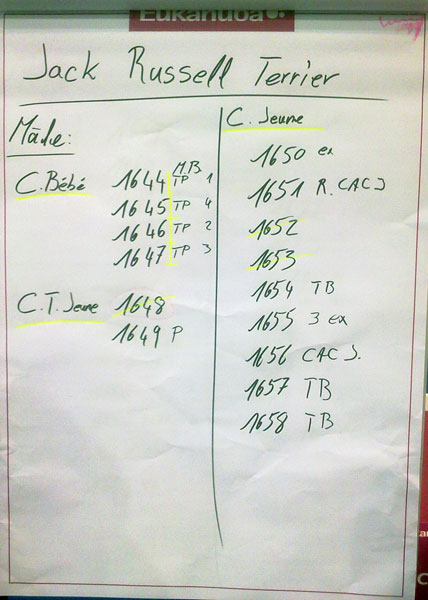 Eukanuba
Jack Russell Terrier
Mâle:
C. Bébé
M.B
1644 TP 1
1645 TP 4
1646 TP 2
1647 TP 3
C.T. Jeune 1648
1649 P
C. Jeune
1650 ex
1651 R. CAC J
1652
1653
1654 TB
1655 3 ex
1656 CAC J.
1657 TB
1658 TB